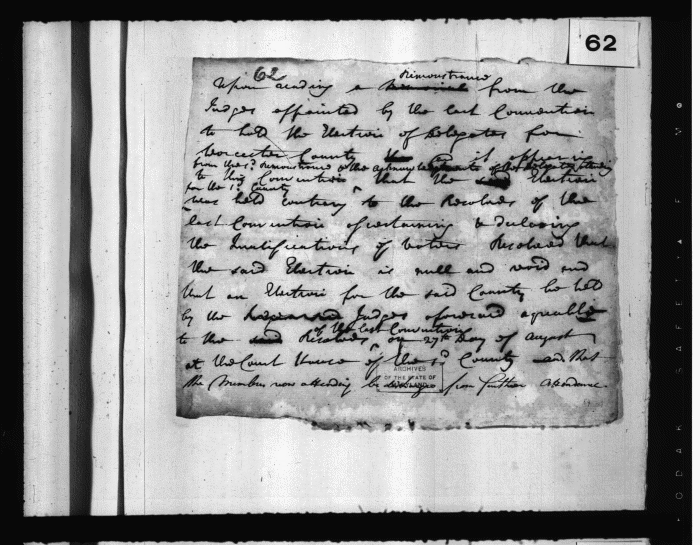 62
62
Remonstrance
Upon reading a from the
Judges appointed by the last Convention
to hold the Election of Delegates for
Worcester County it appearing
from the sd. Remonstrance & the acknowledgments of the Delegates
to this Convention that the Election
for the sd. County
was held contrary to the Resolves of the
last Convention ascertaining & declaring
the Qualifications of Voters Resolved that
the said Election is null and void and
that an Election for the said County be held
by the Judges aforesaid agreeable
of the last Convention
to the Resolves, on 27th Day of August
at the Court House of the sd. County and that
the Members now attending be from further attendance
ARCHIVES
OF THE STATE OF
MARYLAND
KODAK SAFETY FILM